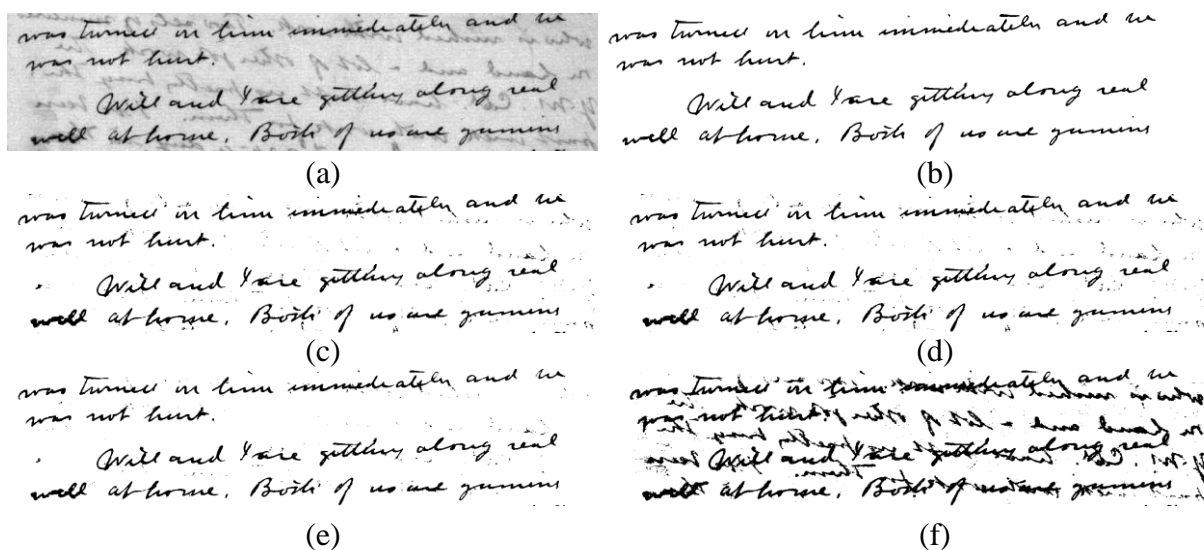 was turned on him immediately and he
was not hurt.
Will and I are getting along real
well at home. Both of us are gaining
(a)
was turned on him immediately and he
was not hurt.
Will and I are getting along real
well at home. Both of us are gaining
(b)
was turned on him immediately and he
was not hurt.
Will and I are getting along real
well at home. Both of us are gaining
(c)
was turned on him immediately and he
was not hurt.
Will and I are getting along real
well at home. Both of us are gaining
(d)
was turned on him immediately and he
was not hurt.
Will and I are getting along real
well at home. Both of us are gaining
(e)
was turned on him immediately and he
was not hurt.
Will and I are getting along real
well at home. Both of us are gaining
(f)